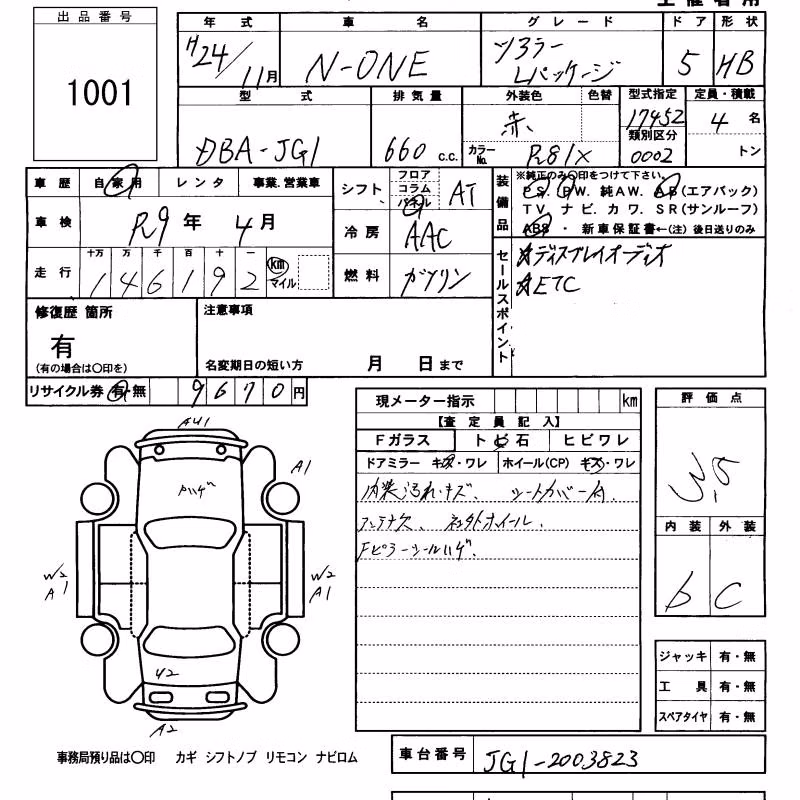 出品番号
1001
年式 車名 グレード ドア 形状
H24/11月 N-ONE ツアラー Lパッケージ 5 HB
型式 排気量 外装色 色替 型式指定 定員・積載
DBA-JG1 660 c.c. 赤 カラーNo. R81X 17452 4名
類別区分 0002 トン
車歴 自家用 レンタ 事業.営業車
車検 R9年 4月
走行 十万 万 千 百 十 一
146192 km マイル
シフト フロア コラム パネル AT
冷房 AAC
燃料 ガソリン
装備品 ※純正のみ〇印をつけて下さい。
PS. PW. 純AW. AB(エアバック)
TV. ナビ. カワ. SR(サンルーフ)
ABS ・ 新車保証書←(注) 後日送りのみ
セールスポイント
ディスプレイオーディオ
ETC
修復歴 箇所
有
(有の場合は〇印を)
注意事項
名変期日の短い方 月 日まで
リサイクル券 有・無 9670円
現メーター指示 km
【査定員記入】
Fガラス トビ石 ヒビワレ
ドアミラー キズ・ワレ ホイール(CP) キズ・ワレ
内装汚れ・キズ、シートカバー付
アンテナ欠、社外ホイール、
Fピラーシールハゲ、
評価点
3.5
内装 外装
b C
AU1
A1
ハゲ
W2 A1
W2 A1
U2
A2
ジャッキ 有・無
工具 有・無
スペアタイヤ 有・無
事務局預り品は〇印 カギ シフトノブ リモコン ナビロム
車台番号 JG1-2003823